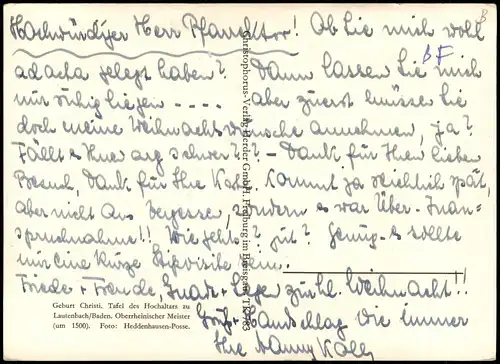 Hochwürdiger Herr Pfarrektor! Ob Sie mich wohl
ad acta gelegt haben? Dann lassen Sie mich
nur ruhig liegen - - - - aber zuerst müssen Sie
doch meine Weihnachtswünsche annehmen, ja?
Fällt's Ihne arg schwer?? - Dank für Ihren lieben
Besuch, Dank für Ihre Karte. Kommt ja reichlich spät,
aber nicht aus vergessen, sondern es war Über-Inan-
spruchnahme!! Wie geht's? gut? Genug - es sollte
nur eine kurze Stipvisite sein.
Friede + Freude, Gnade + Segen zur hl. Weihnacht!!
Gruß + Handschlag wie immer
Ihre Hanny
BF
Geburt Christi. Tafel des Hochaltars zu
Lautenbach/Baden. Oberrheinischer Meister
(um 1500). Foto: Heddenhausen-Posse.
Christophorus-Verlag Herder GmbH. Freiburg im Breisgau